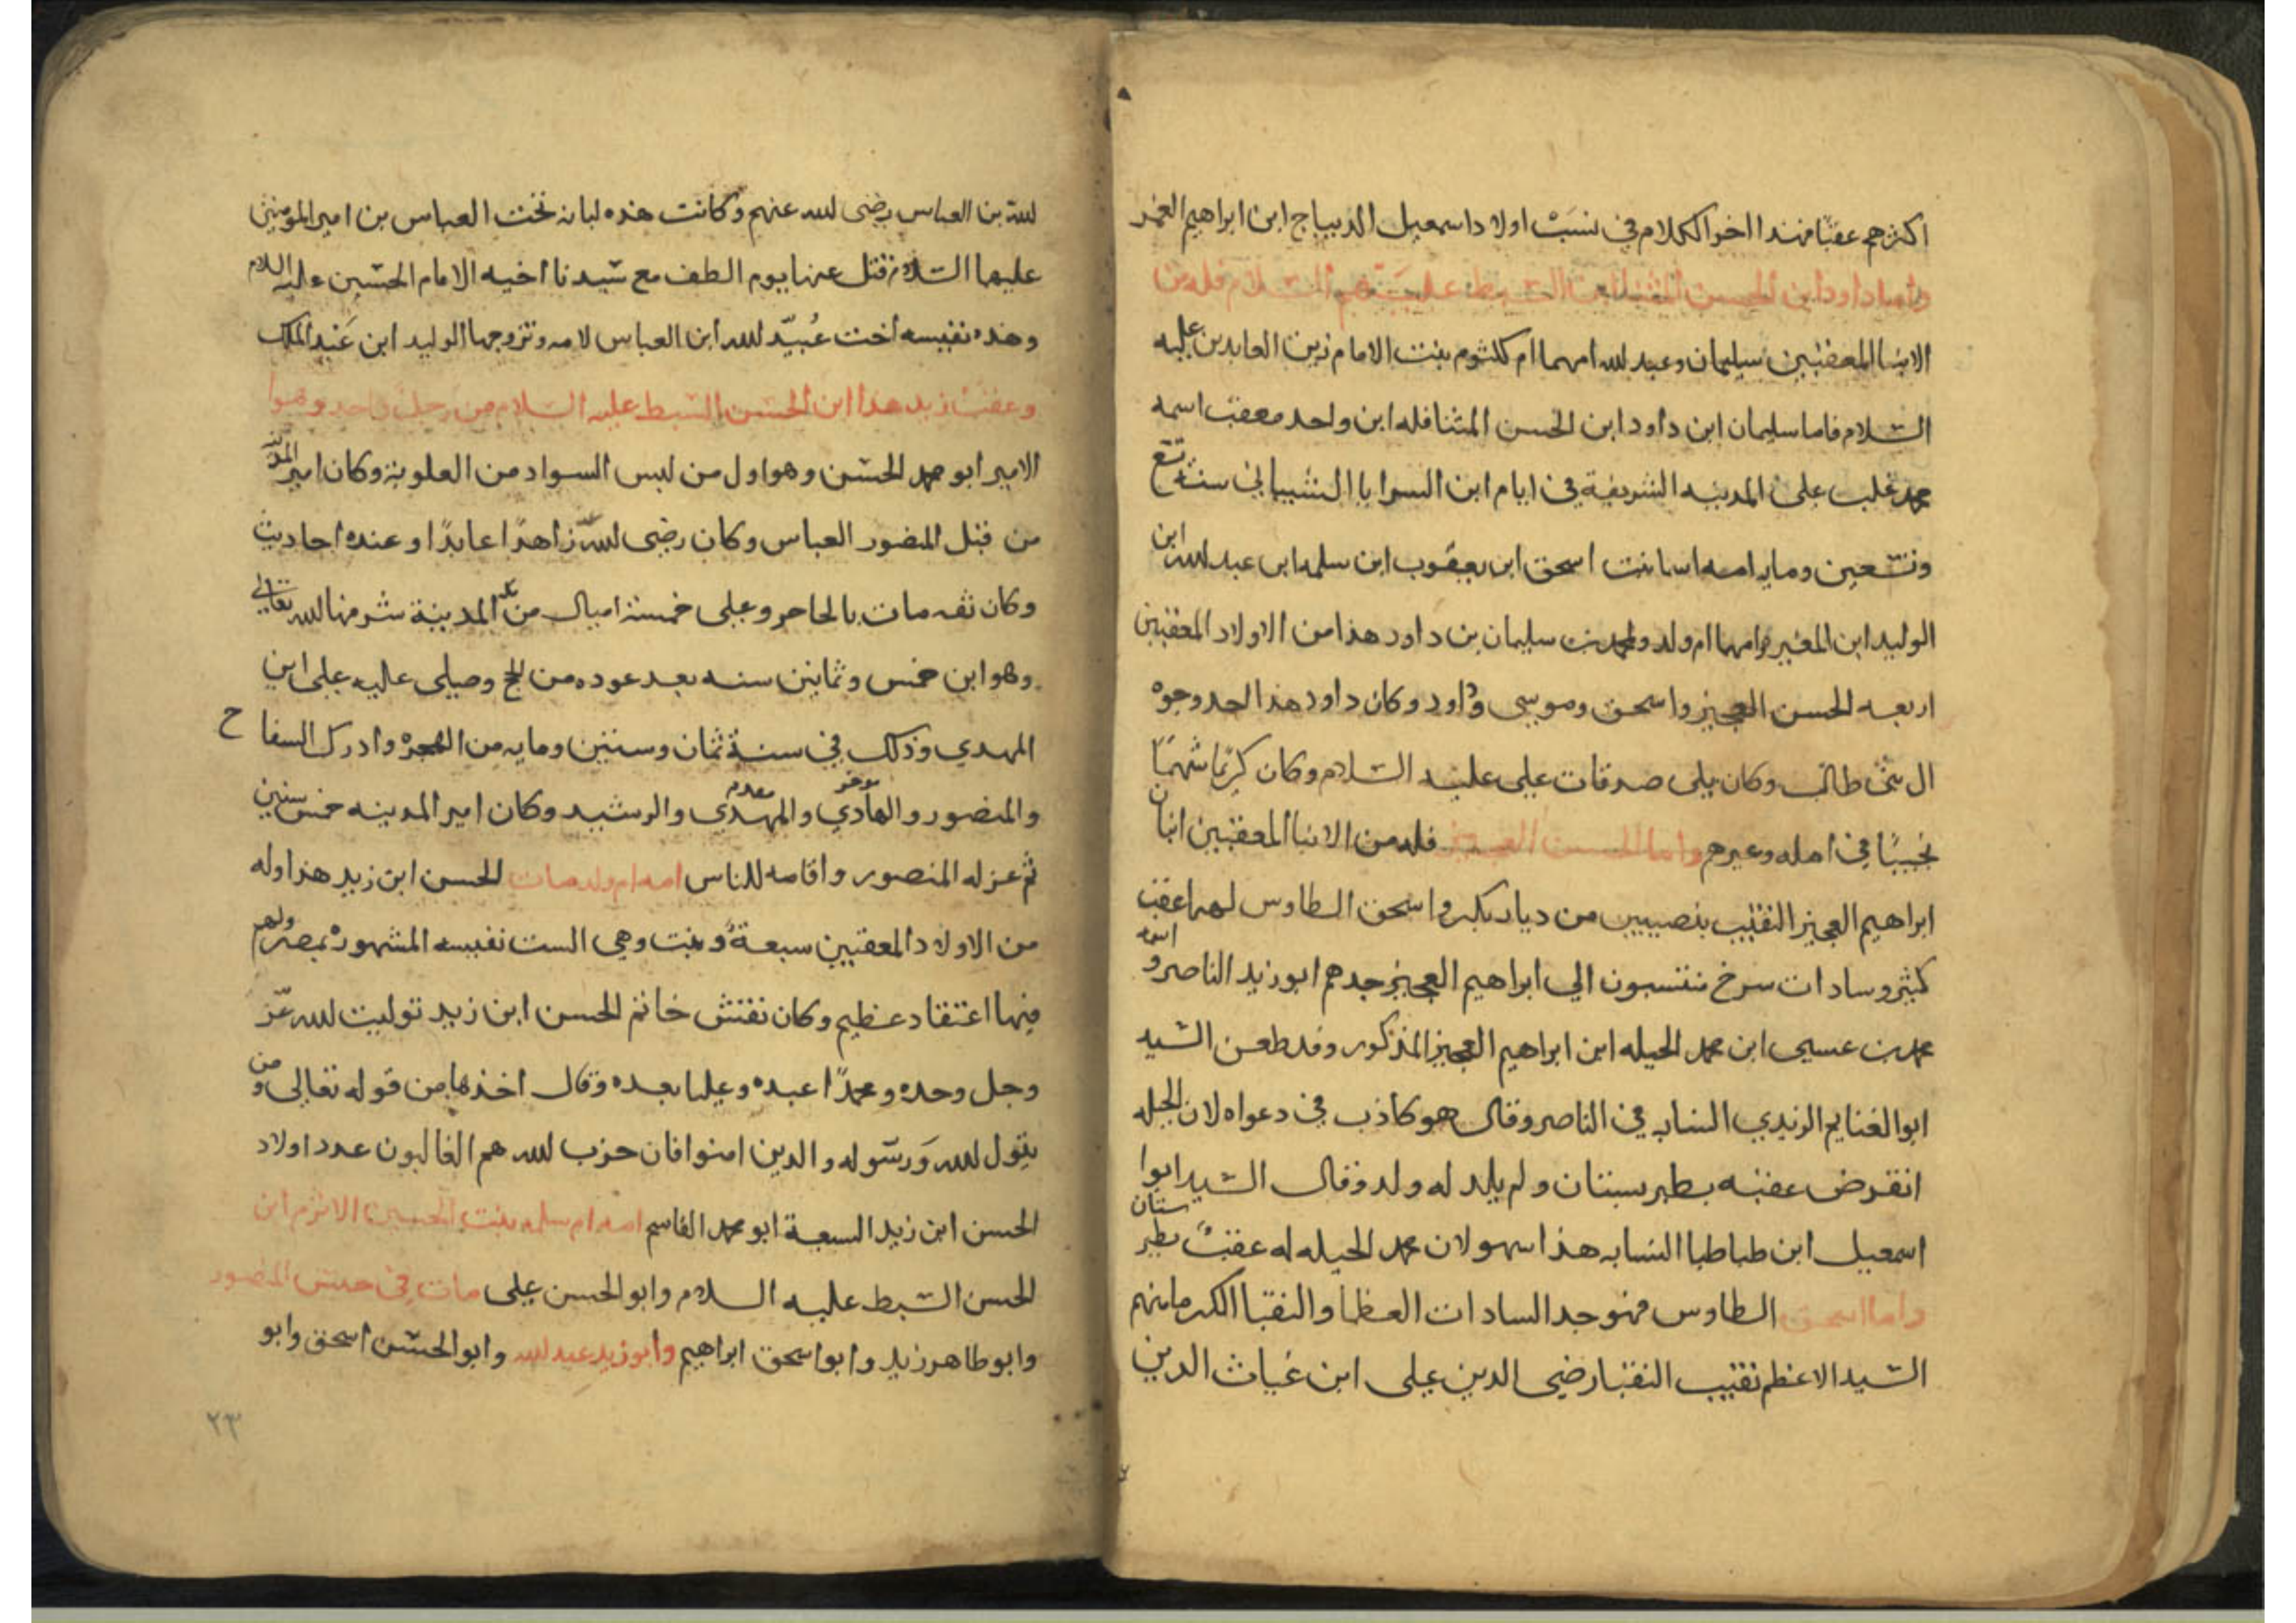 اكثرهم عقبا فهذا اخر الكلام في نسب اولاد اسمعيل الديباج ابن ابراهيم الغمر
واما داود ابن الحسن المثنا ابن السبط عليهم السلام فله من
الابنا المعقبين سليمان وعبد لله امهما ام كلثوم بنت الامام زين العابدين عليه
السلام فاما سليمان ابن داود ابن الحسن المثنا فله ابن واحد معقب اسمه
محمد غلب على المدينه الشريفة في ايام ابن السرايا الشيباني سنة تسع
وتسعين ومايه امه اسما بنت اسحق ابن يعقوب ابن سلمه ابن عبد لله ابن
الوليد ابن المغيره وامهما ام ولد ولمحمد بن سليمان بن داود هذا من الاولاد المعقبين
اربعه الحسن العجيز واسحق وموسى وداود وكان داود هذا احد وجوه
ال بني طالب وكان يلى صدقات على عليه السلام وكان كريمًا شهمًا
نجيبًا في اهله وغيرهم واما الحسن العجيز فله من الابنا المعقبين ابنان
ابراهيم العجيز النقيب بنصيبين من ديار بكر واسحق الطاوس لهما عقب
كثير وسادات سرخ منتسبون الي ابراهيم العجيز جدهم ابو زيد الناصر واسمه
محمد بن عسيى ابن محمد الحيله ابن ابراهيم العجيز المذكور وقد طعن السيد
ابوا الغنايم الزيدي النسابه في الناصر وقال هو كاذب في دعواه لان الحيله
انقرض عقبه بطبرسبتان ولم يلد له ولد وقال السيد ابوا
اسمعيل ابن طباطبا النسابه هذا سهو لان محمد الحيله له عقبٌ بطبرستان
واما اسحق الطاوس فهو جد السادات العظما والنقبا الكرما منهم
السيد الاعظم نقيب النقبا رضي الدين على ابن غياث الدين
لله بن العباس رضى لله عنهم وكانت هذه لبانه تحت العباس بن امير المومنين
عليهما السلام فقتل عنها يوم الطف مع سيدنا اخيه الامام الحسين عليه السلام
وهذه نفيسه اخت عُبيّد لله ابن العباس لامه وتزوجها الوليد ابن عَبد الملك
وعقب زيد هذا ابن الحسن السبط عليه السلام من رجل واحد وهوا
الامير ابو محمد الحسن وهو اول من لبس السواد من العلوية وكان امير المدينه
من قبل المنصور العباس وكان رضى لله عنه زاهدًا عابدًا وعنده احاديث
وكان ثقه مات بالحاجر وعلى خمسة اميال من المدينة شرفها الله تعالى
وهو ابن خمس وثمانين سنه بعد عوده من الحج وصلى عليه على ابن
المهدي وذلك في سنة ثمان وستين ومايه من الهجره وادرك السفاح
والمنصور والهادي موخر والمهدي مقدم والرشيد وكان امير المدينه خمس سنين
ثم عزله المنصور واقامه للناس امه ام ولد مات الحسن ابن زيد هذا وله
من الاولاد المعقبين سبعةً وبنت وهي الست نفيسه المشهورة بمصر ولهم
فيها اعتقاد عظيم وكان نقش خاتم الحسن ابن زيد توليت لله عزّ
وجل وحده ومحمدًا عبده وعليا بعده وقال اخذها من قوله تعالى ومن
يتول لله وَرسوله والدين امنوا فان حزب لله هم الغالبون عدد اولاد
الحسن ابن زيد السبعة ابو محمد القاسم امه ام سلمه بنت الحسين الاثرم ابن
الحسن السبط عليه السلام وابو الحسن على مات في حبس المنصور
وابو طاهر زيد وابوا سحق ابراهيم وابو زيد عبد لله وابو الحسن اسحق وابو
٢٣